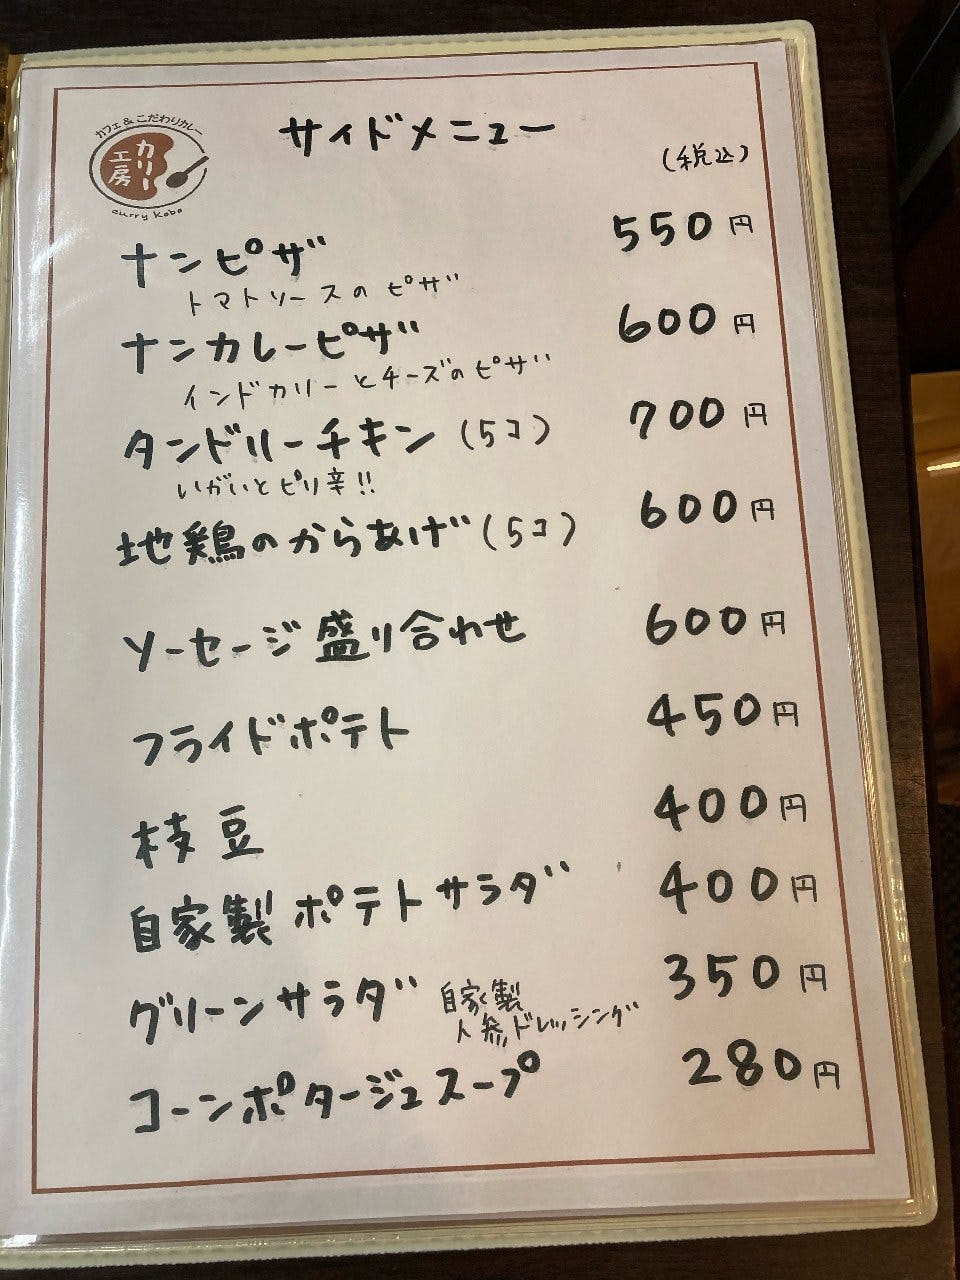 カフェ&こだわりカレー
カリー
工房
curry kobo
サイドメニュー
(税込)
ナンピザ 550円
トマトソースのピザ
ナンカレーピザ 600円
インドカリーとチーズのピザ
タンドリーチキン(5コ) 700円
いがいとピリ辛!!
地鶏のからあげ(5コ) 600円
ソーセージ盛り合わせ 600円
フライドポテト 450円
枝豆 400円
自家製ポテトサラダ 400円
グリーンサラダ 自家製 350円
人参ドレッシング
コーンポタージュスープ 280円